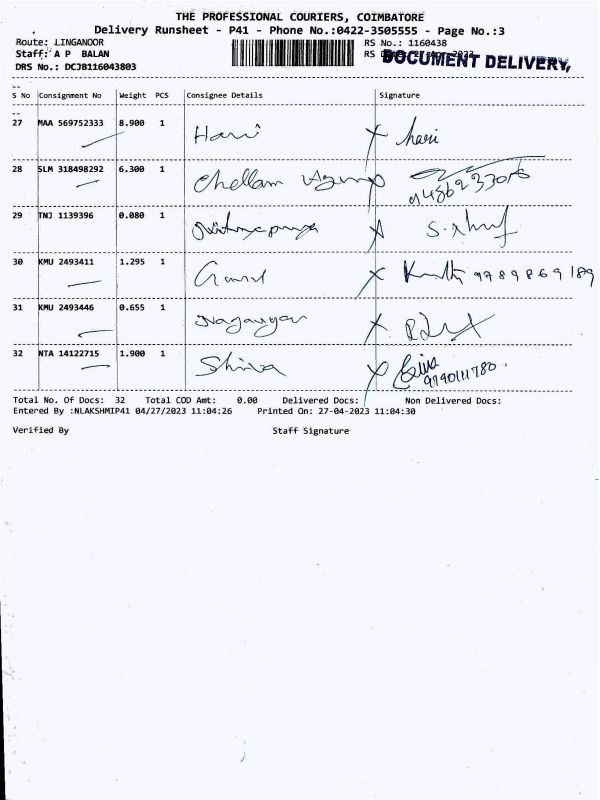 THE PROFESSIONAL COURIERS, COIMBATORE
Delivery Runsheet - P41 - Phone No.:0422-3505555 - Page No.:3
Route: LINGANOOR RS No.: 1160438
Staff: A P BALAN RS DOCUMENT DELIVERY,
DRS No.: DCJB116043803
S No Consignment No Weight PCS Consignee Details Signature
27 MAA 569752333 8.900 1 Hari hari
28 SLM 318498292 6.300 1 Chellam
29 TNJ 1139396 0.080 1
30 KMU 2493411 1.295 1 9789869189
31 KMU 2493446 0.655 1
32 NTA 14122715 1.900 1 Shiva
9790111780
Total No. Of Docs: 32 Total COD Amt: 0.00 Delivered Docs: Non Delivered Docs:
Entered By :NLAKSHMIP41 04/27/2023 11:04:26 Printed On: 27-04-2023 11:04:30
Verified By Staff Signature